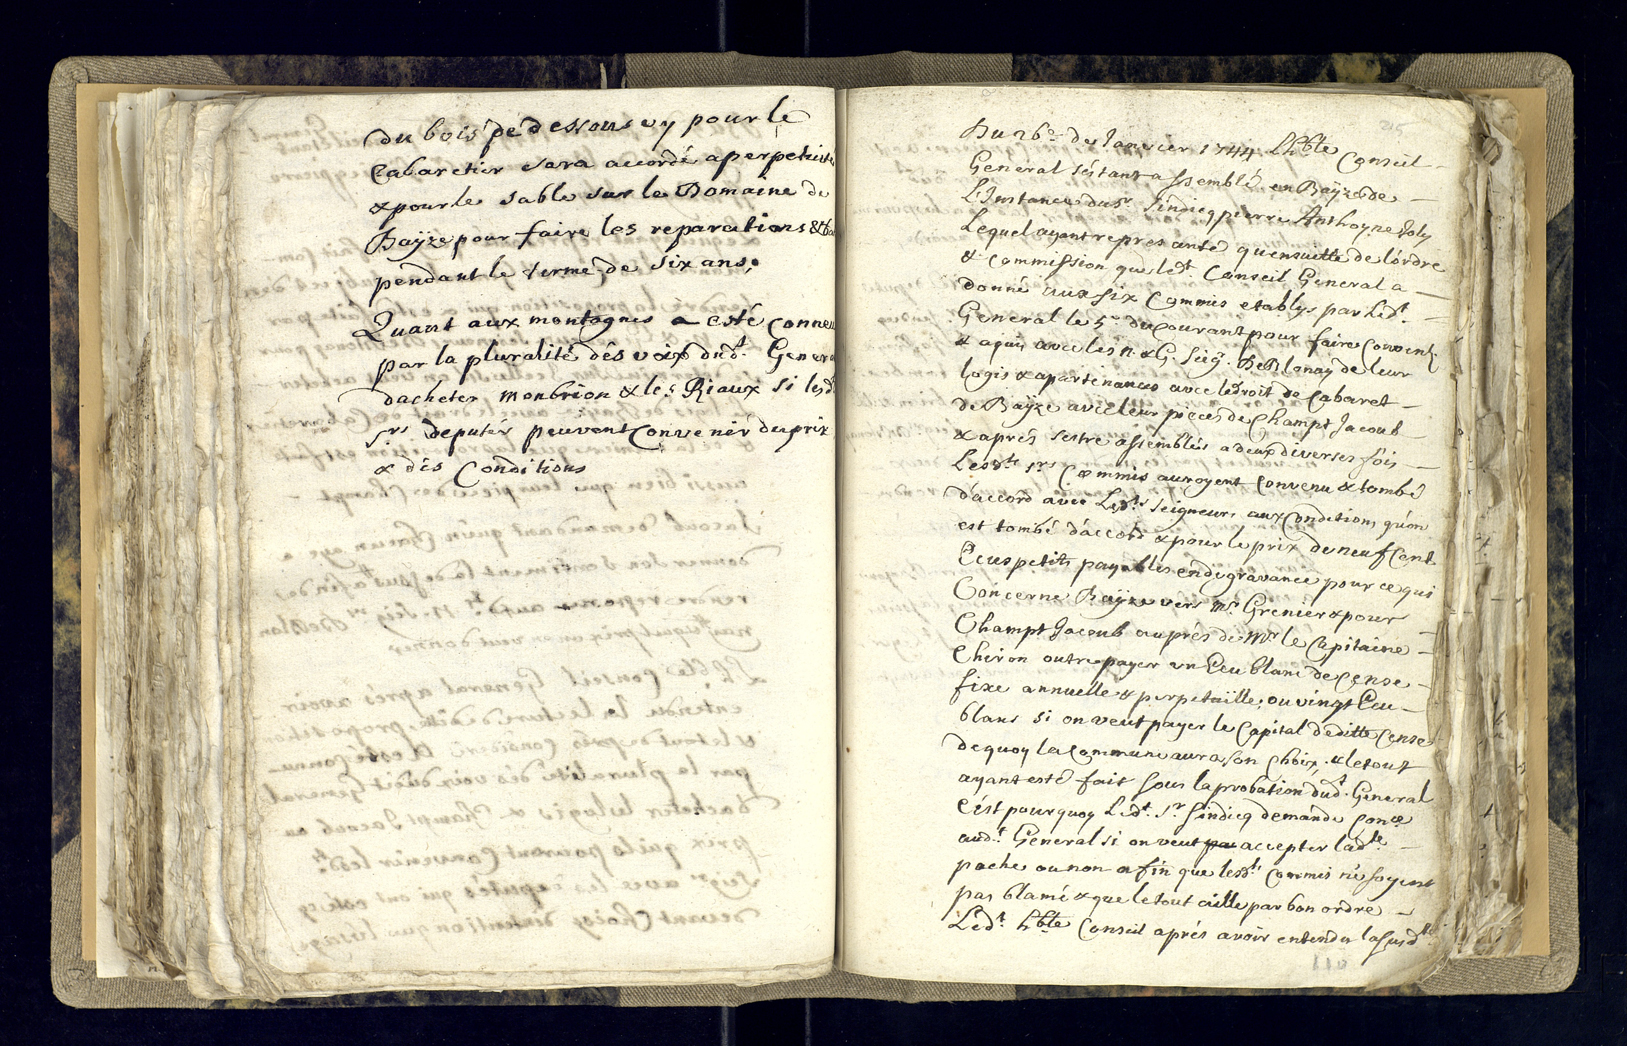 du bois pe dessous vy pour le
Cabaretier sera accordé a perpetuité
& pour le sable sur le Domaine de
Baÿze pour faire les reparations &
pendant le terme de six ans;
Quant aux montagnes a esté conneu
par la pluralité dés voix dud.t General
dacheter monbrion & les Riaux si lesd
srs deputes peuvent Convenir du prix
& dés Conditions
215
Du 26.e de Janvier 1744 Lh.ble Conseil
General séstant assemblé en Baÿze de
L'Instance du sr. sindicq pierre Anthoyne Joly
Lequel ayant representé quensuitte de lórdre
& Commission que led.t Conseil General a
donné aux six Commis etablys par Led.t
General le 5.e du Courant pour faire Convent.
& aquis avec les n. & G. seig.r De Blonay de leur
logis & apartenances avec le droit de Cabaret
de Baÿze avec leur pieces de Champt Jacoub
& aprés sestre assemblés a deux diverses fois
Lesd.ts srs Commis auroyent Convenu & tombé
d'accord avec Lesd.ts seigneurs aux Conditions qu'on
est tombé d'accord & pour le prix de neuf Cent
Ecus petits payables en degravance pour ce qui
Concerne Baÿze vers mr. Grenier & pour
Champt Jacoub auprés de Mr le Capitaine
Chiron outre payer un Ecu blanc de Cense
fixe annuelle & perpetuille, ou vingt Ecu
blans si on veut payer le Capital déditte Cense
dequoy la Commune aura son Choix, & le tout
ayant esté fait sous laprobation dud.t General
C'ést pourquoy Led.t sr sindicq demande
aud.t General si on veut accepter lad.te
pache ou non afin que lesd.ts Commis né soyent
pas blamé & que le tout aille par bon ordre
Led.t h.ble Conseil aprés avoir entendu la susd.te
110